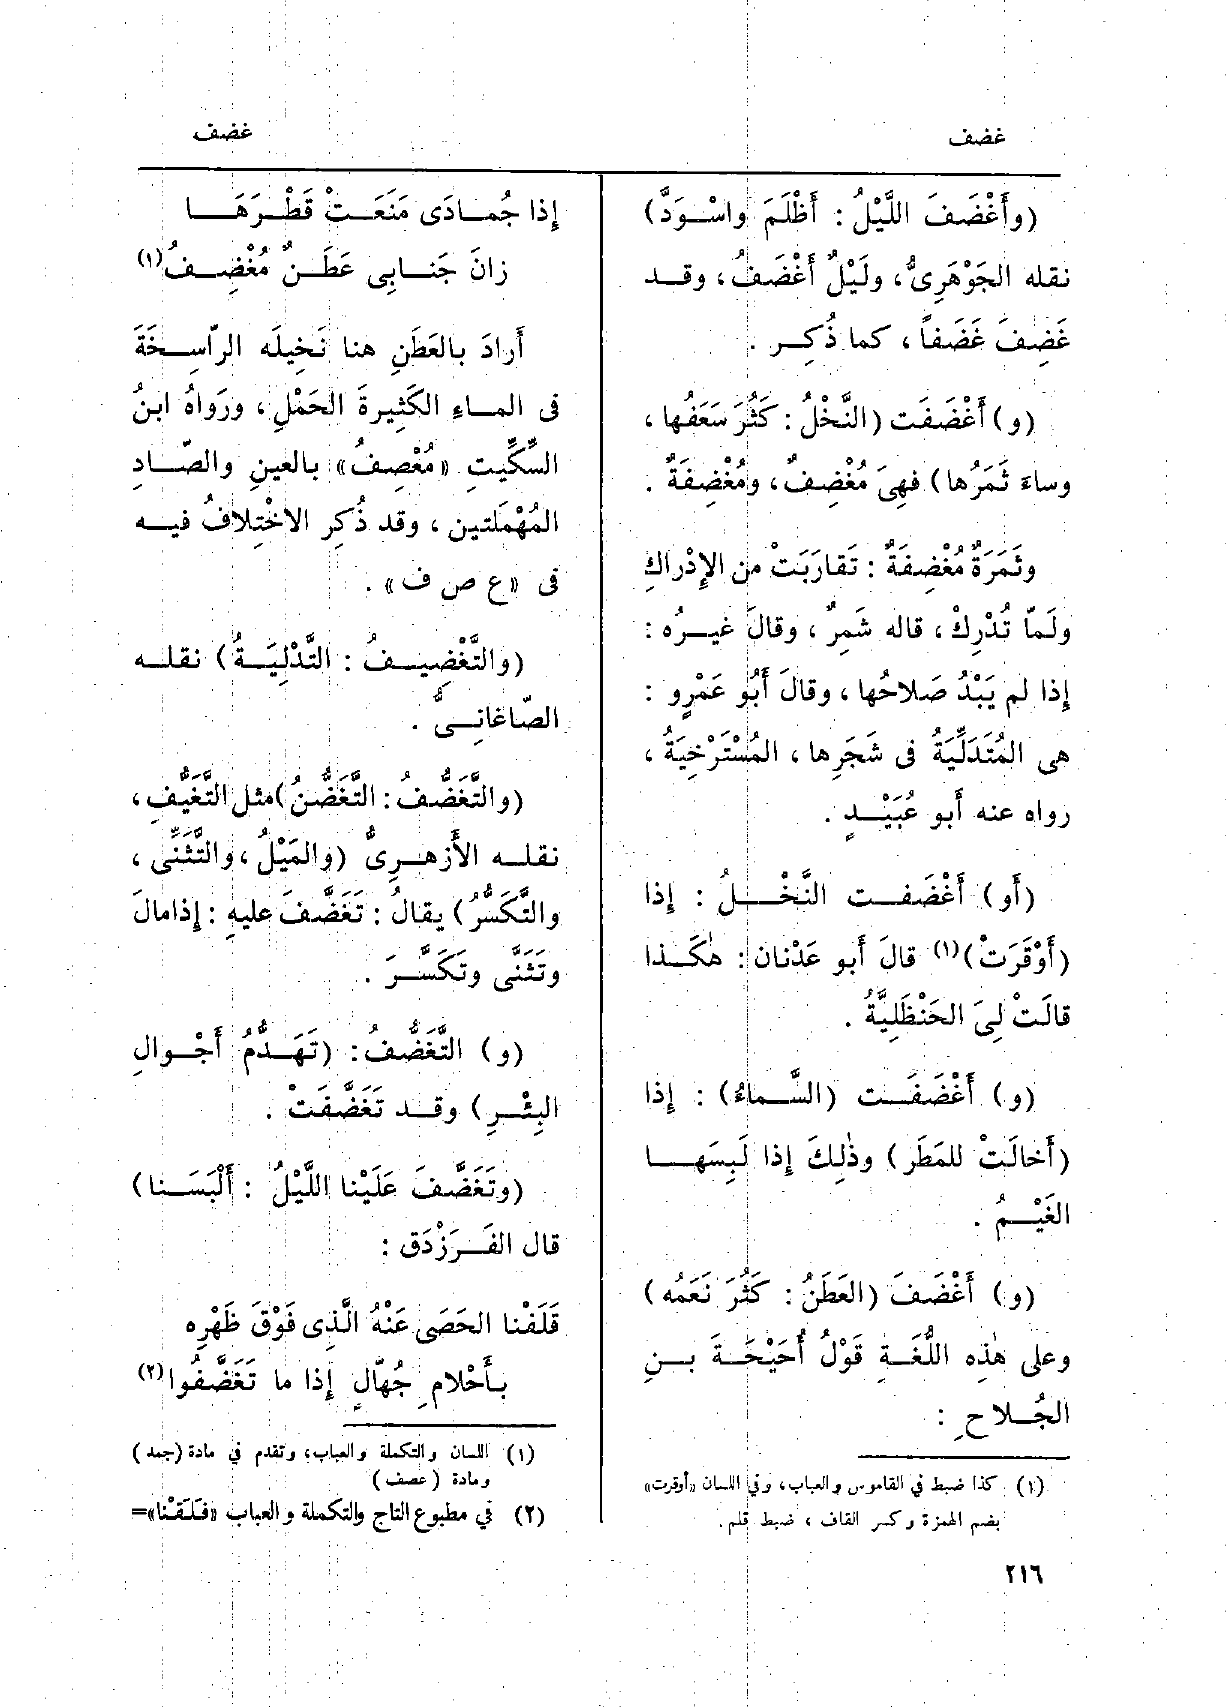 غضف
غضف
(وأَغْضَفَ اللَّيْلُ : أَظْلَمَ واسْوَدَّ)
نقله الجَوْهَرِىُّ، ولَيْلٌ أَغْضَفُ، وقـد
غَضِفَ غَضَفاً، كما ذُكِـر .
(و) أَغْضَفَت (النَّخْلُ : كَثُرَ سَعَفُها،
وساءَ ثَمَرُها) فهِىَ مُغْضِفٌ، ومُغْضِفَةٌ .
وثَمَرَةٌ مُغْضِفَةٌ : تَقارَبَتْ من الإِدْراكِ
ولَمّا تُدْرِكْ، قاله شَمِرٌ، وقالَ غيـرُه :
إِذا لم يَبْدُ صَلاحُها، وقالَ أَبُو عَمْرٍو :
هى المُتَدَلِّيَةُ فى شَجَرِها، المُسْتَرْخِيَةُ،
رواه عنه أَبو عُبَيْـدٍ .
(أَو) أَغْضَفـت النَّخْـلُ : إِذا
(أَوْقَرَتْ)(١) قالَ أَبو عَدْنان : هٰكَـذا
قالَتْ لِىَ الحَنْظَلِيَّةُ .
(و) أَغْضَفَـت (السَّـماءُ) : إِذا
(أَخالَتْ للمَطَر) وذٰلِكَ إِذا لَبِسَهـا
الغَيْـمُ .
(و) أَغْضَفَ (العَطَنُ : كَثُرَ نَعَمُه)
وعلى هٰذِه اللُّغَـةِ قَوْلُ أُحَيْحَـةَ بـنِ
الجُـلاحِ :
(١) كذا ضبط في القاموس والعباب، وفي اللسان «أوقرت»
بضم الهمزة وكسر القاف، ضبط قلم.
إِذا جُمـادَى مَنَعَـتْ قَطْـرَهَـا
زانَ جَنـابِى عَطَـنٌ مُغْضِـفُ(١)
أَرادَ بالعَطَنِ هنا نَخِيلَه الرّاسِـخَةَ
فى المـاءِ الكَثِيرةَ الحَمْلِ، ورَواهُ ابنُ
السِّكِّيتِ «مُعْصِفُ» بالعينِ والصّـادِ
المُهْمَلَتين، وقد ذُكِر الاخْتِلافُ فيـه
فى «ع ص ف» .
(والتَّغْضِيـفُ : التَّدْلِيَـةُ) نقلـه
الصّاغانِـىُّ .
(والتَّغَضُّفُ : التَّغَضُّنُ) مثل التَّغَيُّفِ،
نقلـه الأَزهـرِىُّ (والمَيْلُ، والتَّثَنِّى،
والتَّكَسُّرُ) يقالُ : تَغَضَّفَ عليهِ : إِذا مالَ
وتَثَنَّى وتَكَسَّـرَ .
(و) التَّغَضُّفُ : (تَهَـدُّمُ أَجْـوالِ
البِئْـرِ) وقـد تَغَضَّفَتْ .
(وتَغَضَّفَ عَلَيْنا اللَّيْلُ : أَلْبَسَـنا)
قال الفَـرَزْدَق :
فَلَفْنا الحَصَى عَنْهُ الَّذِى فَوْقَ ظَهْرِه
بـأَحْلامِ جُهّالٍ إِذا ما تَغَضَّفُوا(٢)
(١) اللسان والتكملة والعباب، وتقدم في مادة (جمد)
ومادة (عصف)
(٢) في مطبوع التاج والتكملة والعباب «فـلَقْنا»=
٢١٦